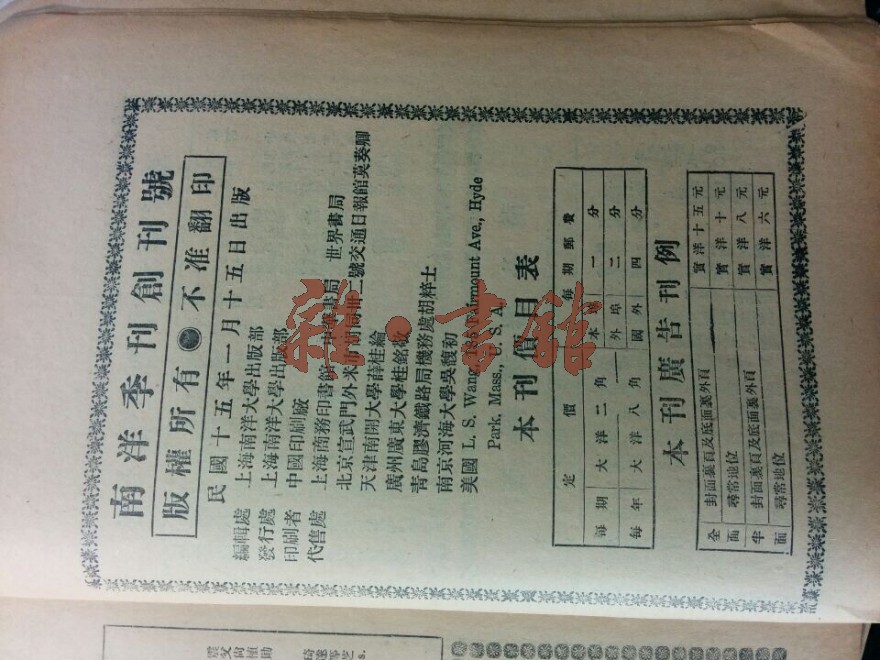 南洋季刊創刊號
版權所有 不准翻印
民國十五年一月十五日出版
編輯處 上海南洋大學出版部
發行處 上海南洋大學出版部
印刷者 中國印刷廠
代售處 上海商務印書館 中華書局 世界書局
北京宣武門外米市胡同卅二號交通日報館莫葵卿
天津南開大學薛桂綸
廣州廣東大學桂銘敬
青島膠濟鐵路局機務處胡粹士
南京河海大學吳馥初
美國 L. S. Wang, Fairmount Ave., Hyde
Park, Mass., U. S. A.
本刊價目表
定價 每期郵費
本埠 外埠 國外
每期 大洋二角 一分 二分 四分
每年 大洋八角
本刊廣告刊例
全面 封面裏頁及底面裏外頁 實洋十五元
尋常地位 實洋十元
半面 封面裏頁及底面裏外頁 實洋八元
尋常地位 實洋六元